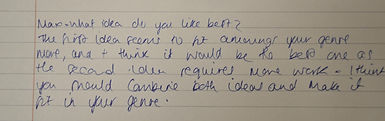 Max - What idea do you like best?
The first Idea seems to fit your genre
more, and I think it would be the best one as
the second idea requires more work - I think
you should Combine both ideas and make it
fit in your genre.